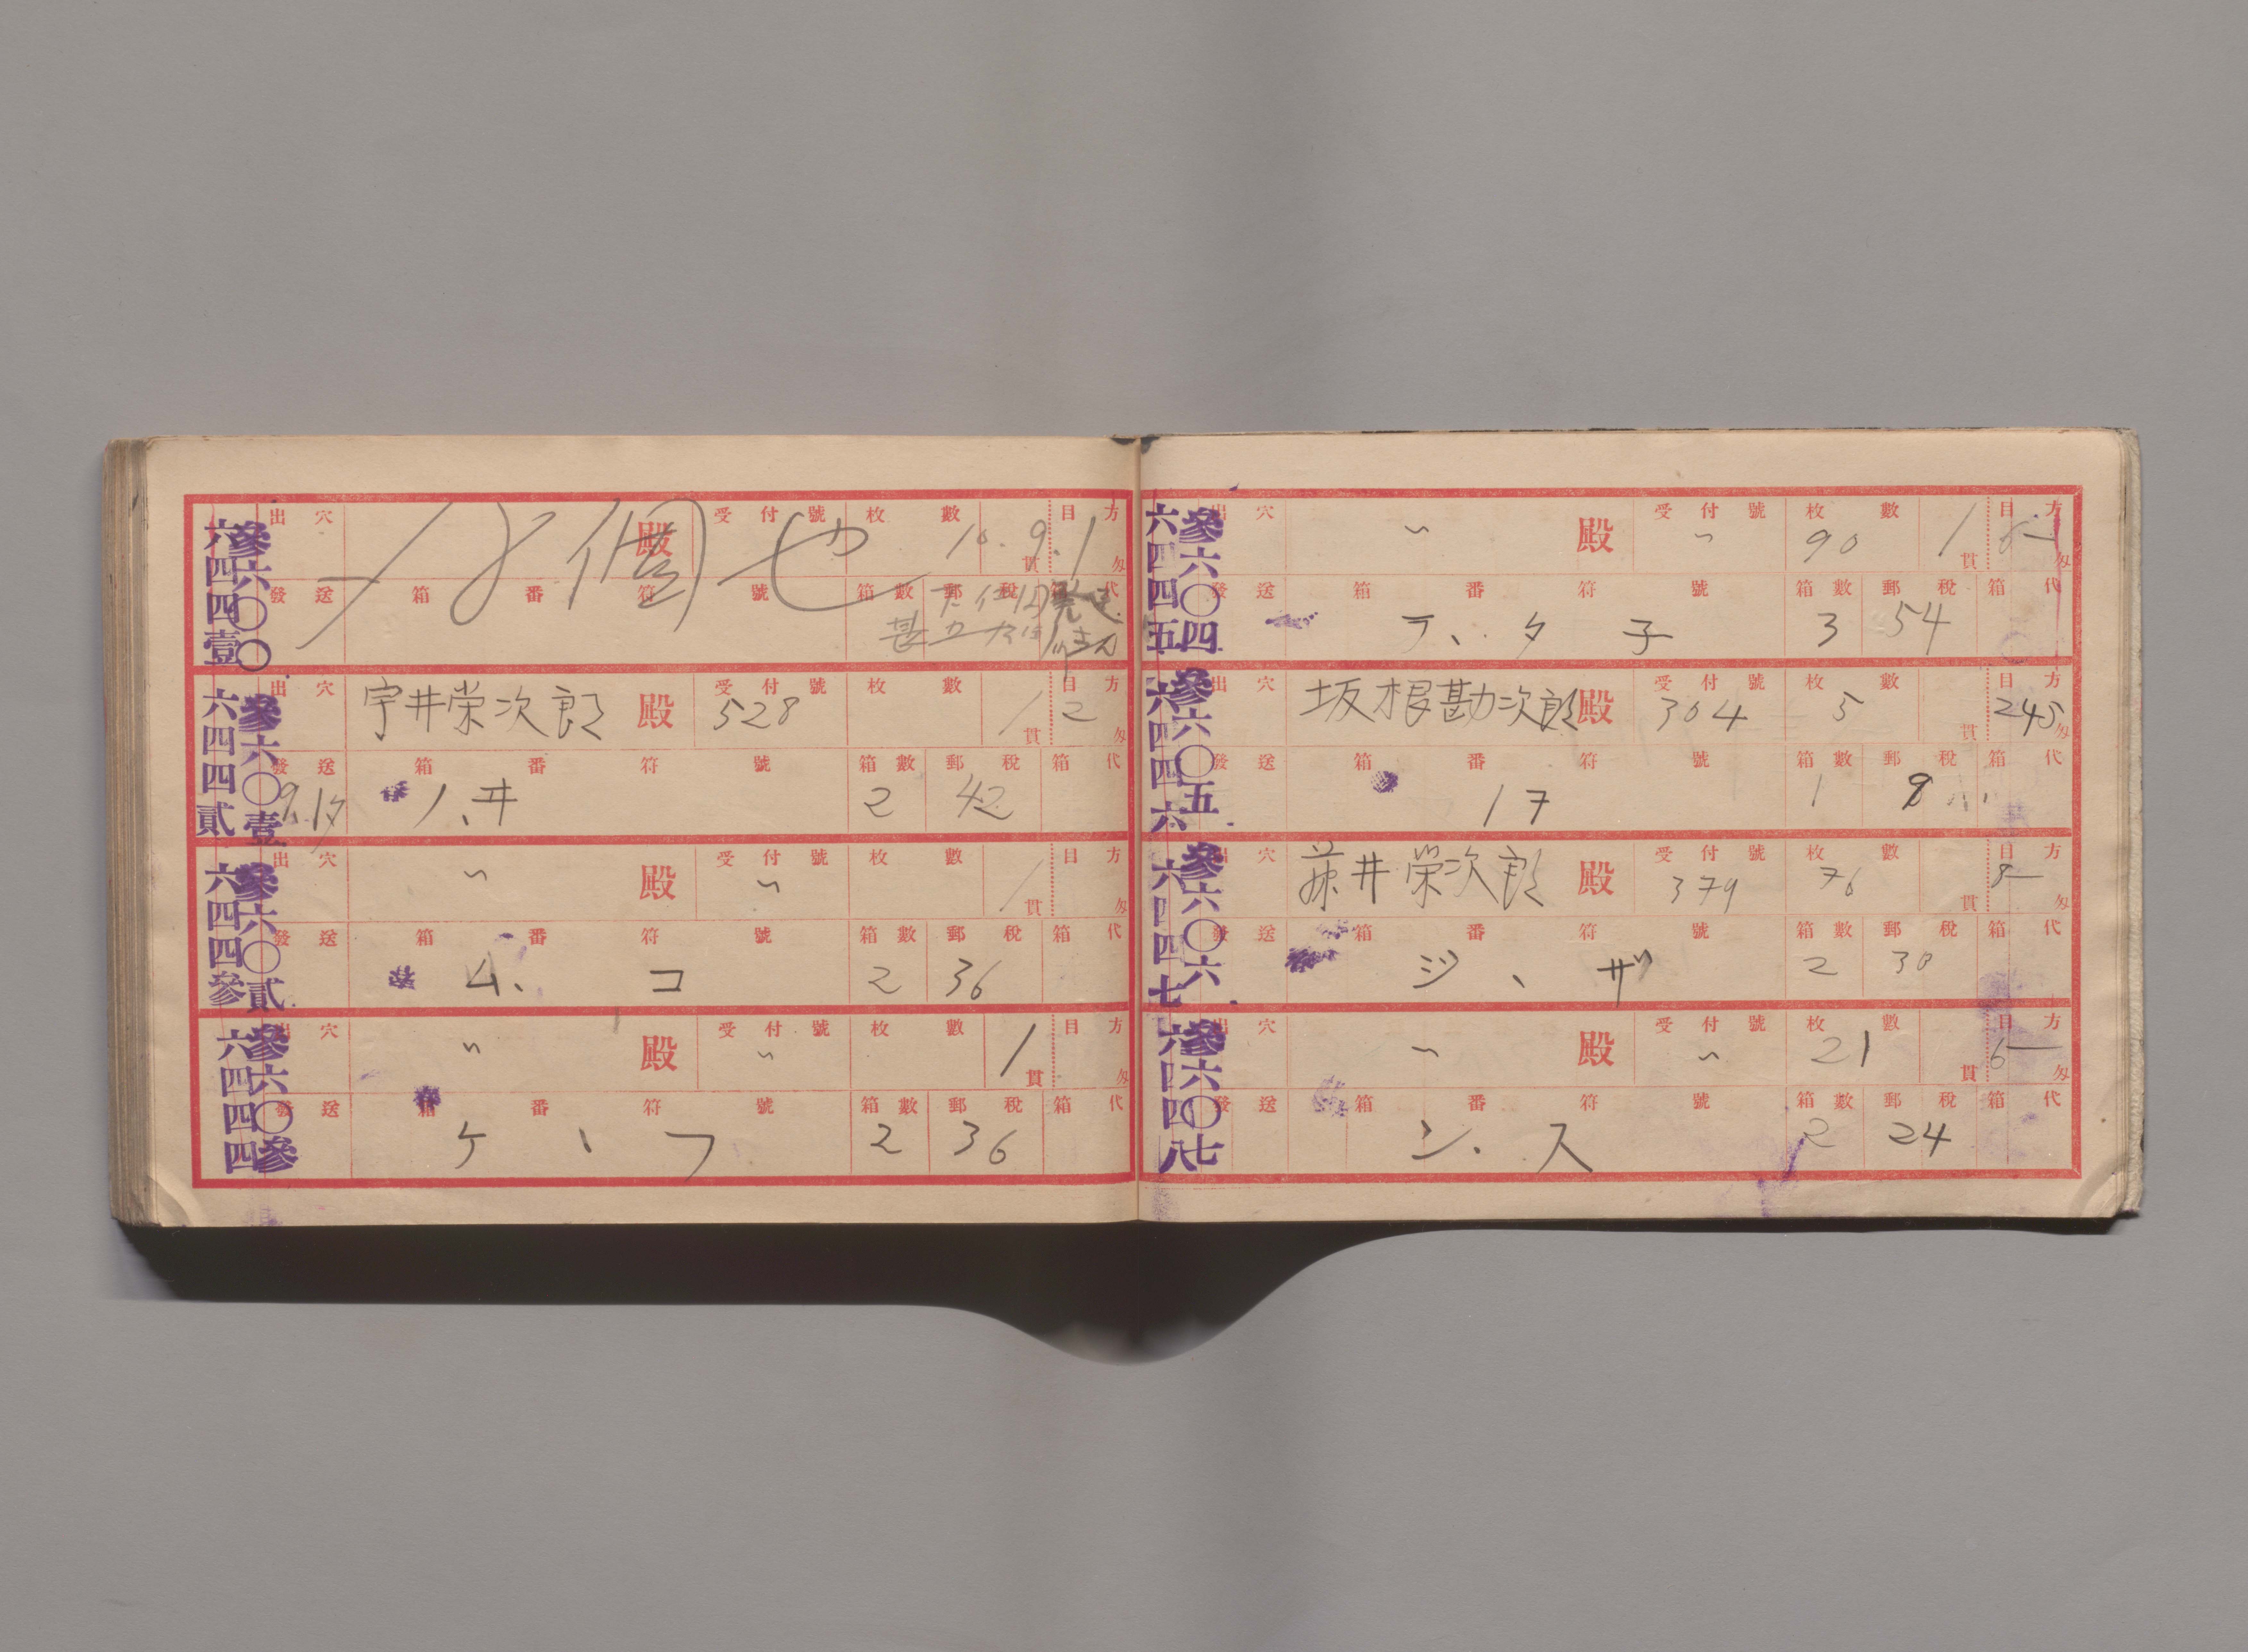 六四四壹
參六〇〇
出穴 殿 受付號 枚數 貫 目方 匁
個也 10.9.1
發送 箱番符號 箱數 郵稅 箱代
六四四貳
參六〇壹
出穴 宇井栄次郎 殿 受付號 528 枚數 1 貫 目方 2 匁
發送 9.17 箱番符號 ノ、井 箱數 2 郵稅 42 箱代
六四四參
參六〇貳
出穴 〃 殿 受付號 〃 枚數 1 貫 目方 匁
發送 箱番符號 ム、コ 箱數 2 郵稅 36 箱代
六四四四
參六〇參
出穴 〃 殿 受付號 〃 枚數 1 貫 目方 匁
發送 箱番符號 ケ、フ 箱數 2 郵稅 36 箱代
六四四五
參六〇四
出穴 〃 殿 受付號 〃 枚數 90 1 貫 目方 6― 匁
發送 箱番符號 テ、タ子 箱數 3 郵稅 54 箱代
六四四六
參六〇五
出穴 坂根勘次郎 殿 受付號 304 枚數 5 貫 目方 245 匁
發送 箱番符號 17 箱數 1 郵稅 箱代
六四四七
參六〇六
出穴 藤井榮次郎 殿 受付號 379 枚數 76 貫 目方 8― 匁
發送 箱番符號 ジ、ザ 箱數 2 郵稅 30 箱代
六四四八
參六〇七
出穴 〃 殿 受付號 〃 枚數 21 貫 目方 6― 匁
發送 箱番符號 シ、ス 箱數 2 郵稅 24 箱代